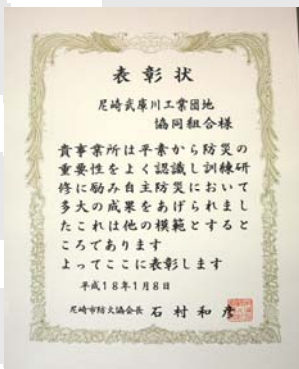 表彰状
尼崎武庫川工業団地
協同組合様
貴事業所は平素から防災の
重要性をよく認識し訓練研
修に励み自主防災において
多大の成果をあげられまし
たこれは他の模範とすると
ころであります
よってここに表彰します
平成18年1月8日
尼崎市防火協会長 石村和彦